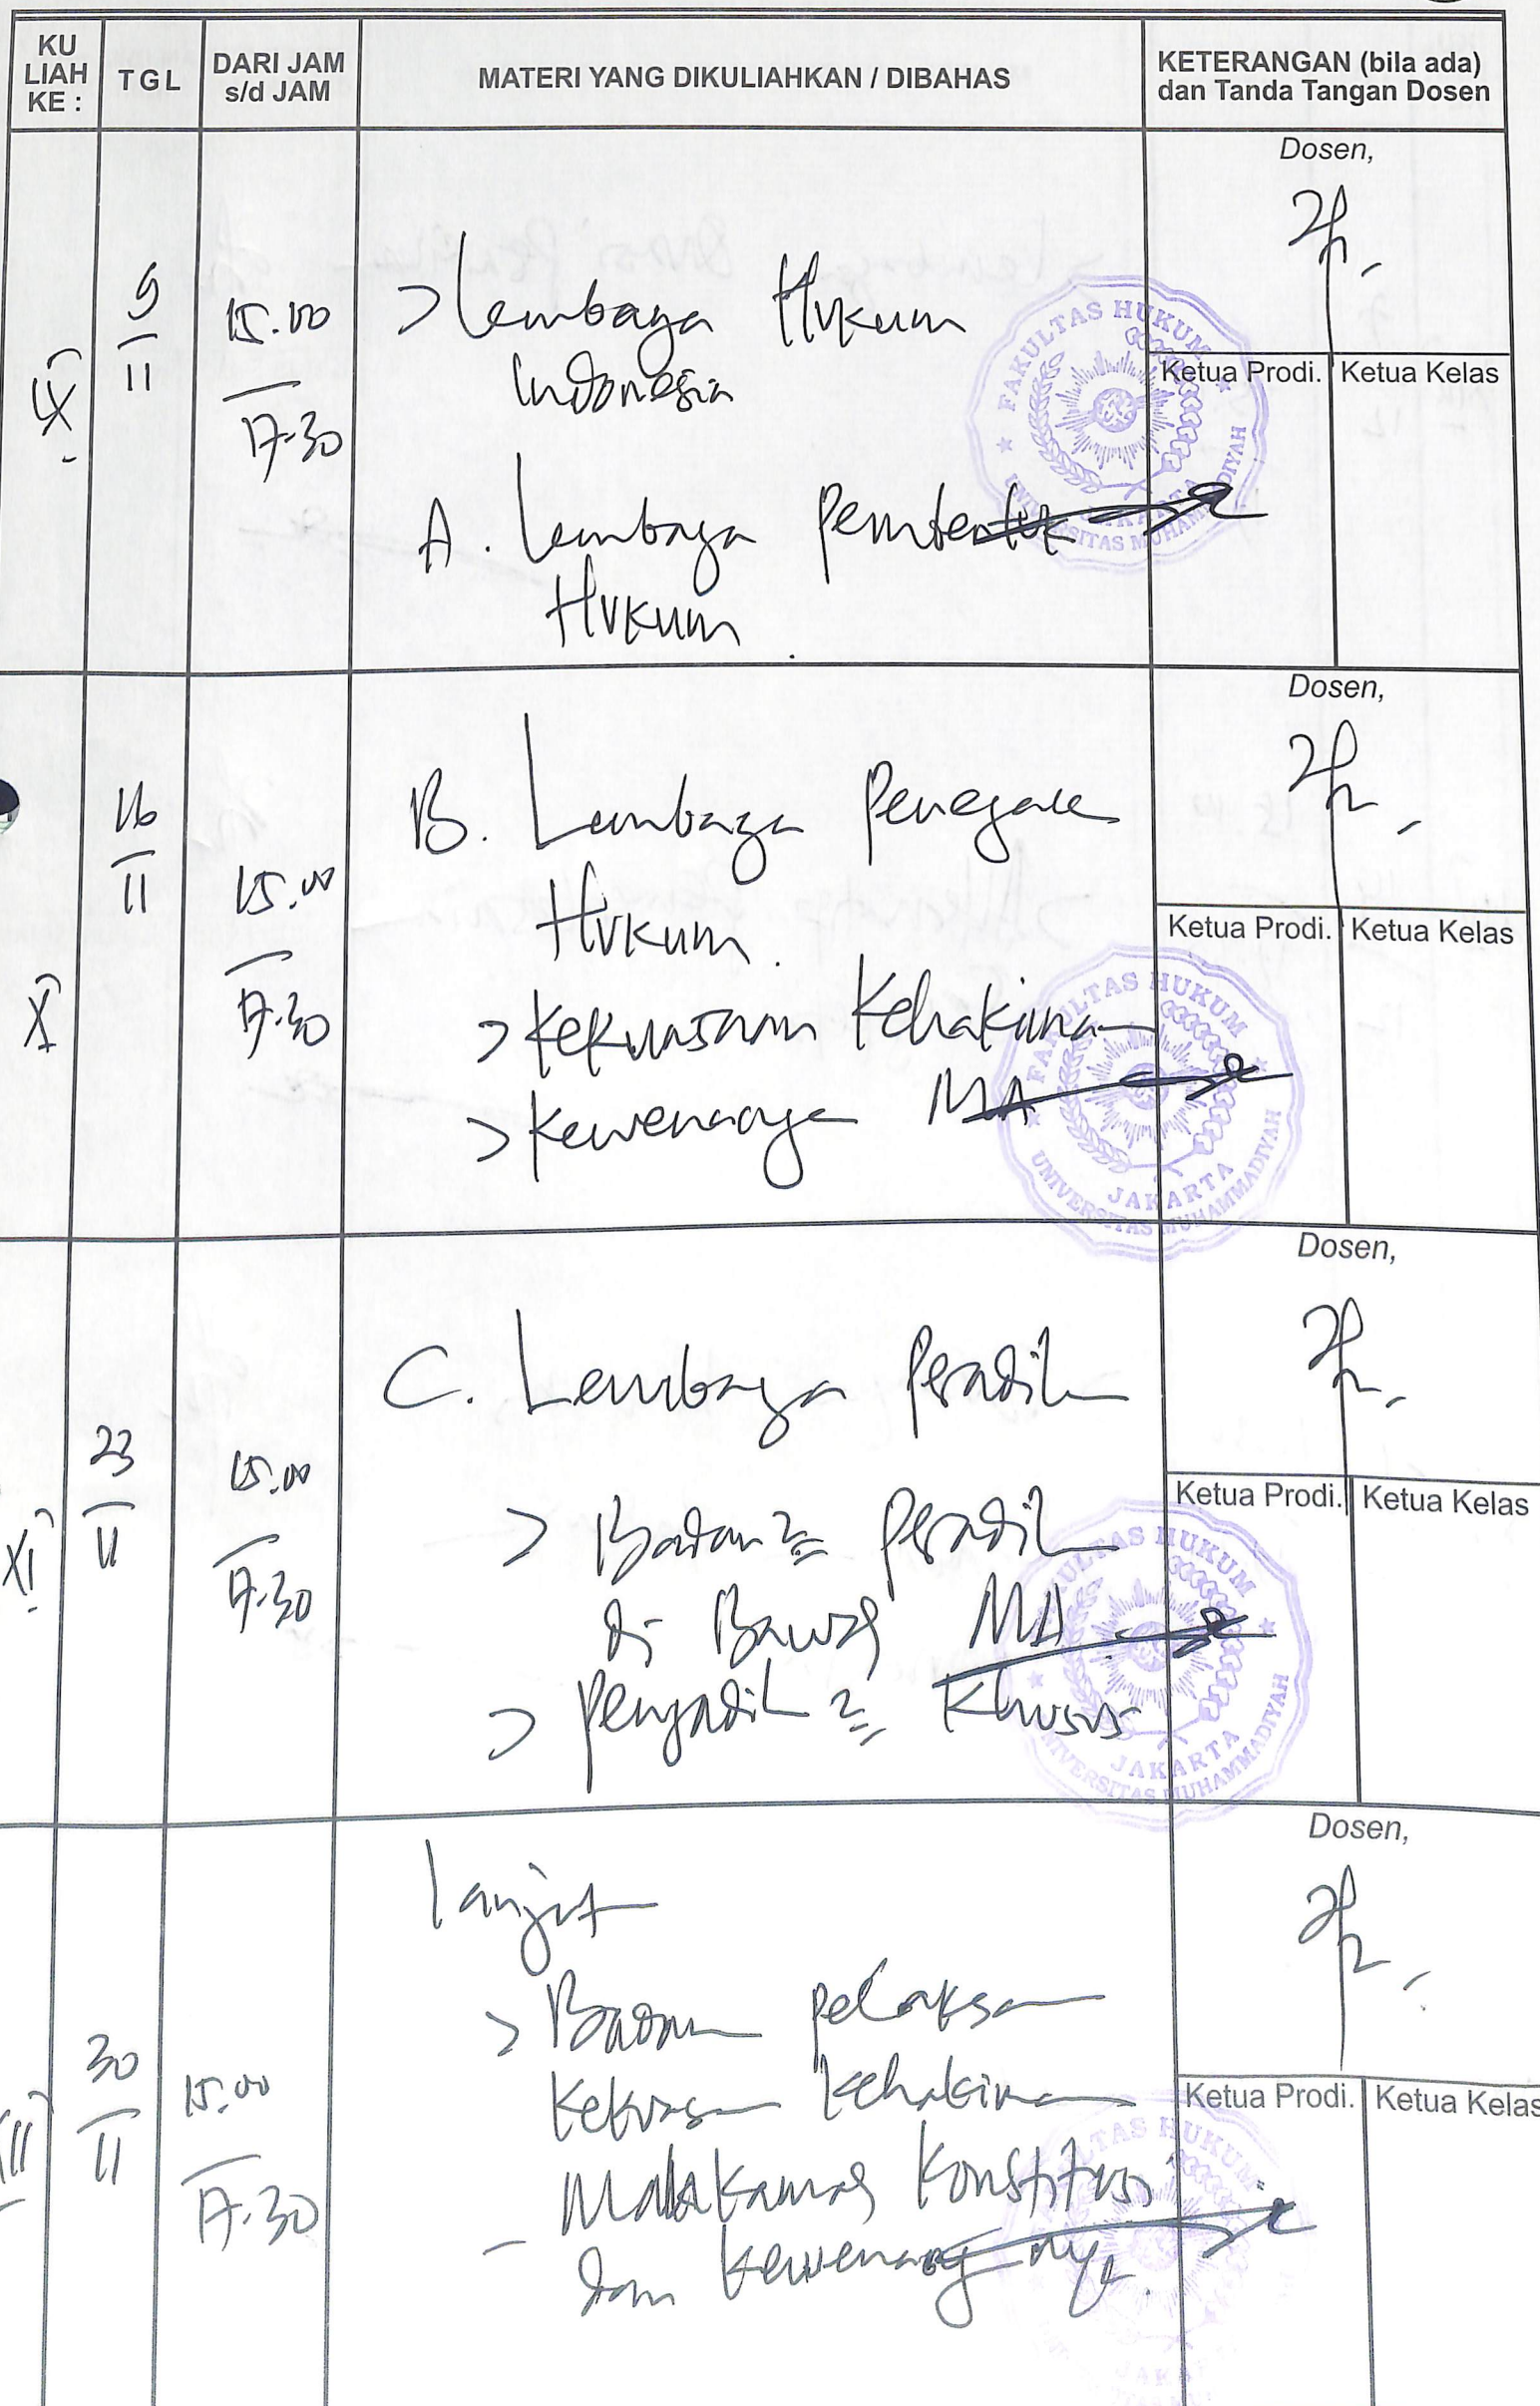 KU LIAH KE :
TGL
DARI JAM s/d JAM
MATERI YANG DIKULIAHKAN / DIBAHAS
KETERANGAN (bila ada) dan Tanda Tangan Dosen
IX
9/11
15.00
17.30
> Lembaga Hukum
Indonesia
A. Lembaga Pembentuk
Hukum
Dosen,
Ketua Prodi.
Ketua Kelas
FAKULTAS HUKUM
UNIVERSITAS MUHAMMADIYAH
JAKARTA
X
16/11
15.00
17.30
B. Lembaga Penegak
Hukum.
> Kekuasaan Kehakiman
> Kewenangan MA
Dosen,
Ketua Prodi.
Ketua Kelas
FAKULTAS HUKUM
UNIVERSITAS MUHAMMADIYAH
JAKARTA
XI
23/11
15.00
17.30
C. Lembaga Peradil
> Badan2 Peradil
di Bawah MA
> Pengadil2 Khusus
Dosen,
Ketua Prodi.
Ketua Kelas
FAKULTAS HUKUM
UNIVERSITAS MUHAMMADIYAH
JAKARTA
XII
30/11
15.00
17.30
lanjut
> Badan pelaksan
Kekuasan Kehakiman
- Mahkamah Konstitusi
dan Kewenangannya.
Dosen,
Ketua Prodi.
Ketua Kelas
FAKULTAS HUKUM
JAKARTA